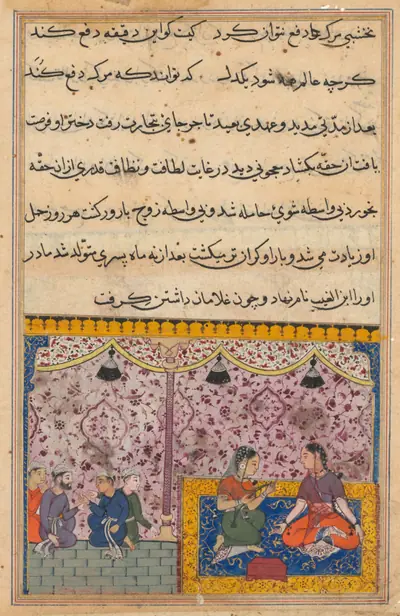 نخشبی مرک دفع نتوان کرد کیت کو این دقیقه دفع کند
کرچه عالم همه شود یکدل که توانند که مرک دفع کند
بعد از مدتی مدید و عهدی بعید تاجر جای تجارت رفت دختر او فرصت
یافت آن حقه بکشاد معجونی دید در غایت لطافت و نظافت قدری از آن حقه
بخورد بی واسطه شوی حامله شد و بی واسطه زوج بارور کشت هر روز حمل
او زیادت می شد و بار او کران تر میکشت بعد از نه ماه پسری متولد شد مادر
او را ابن الغیب نام نهاد و چون غلامان داشتن کرفت